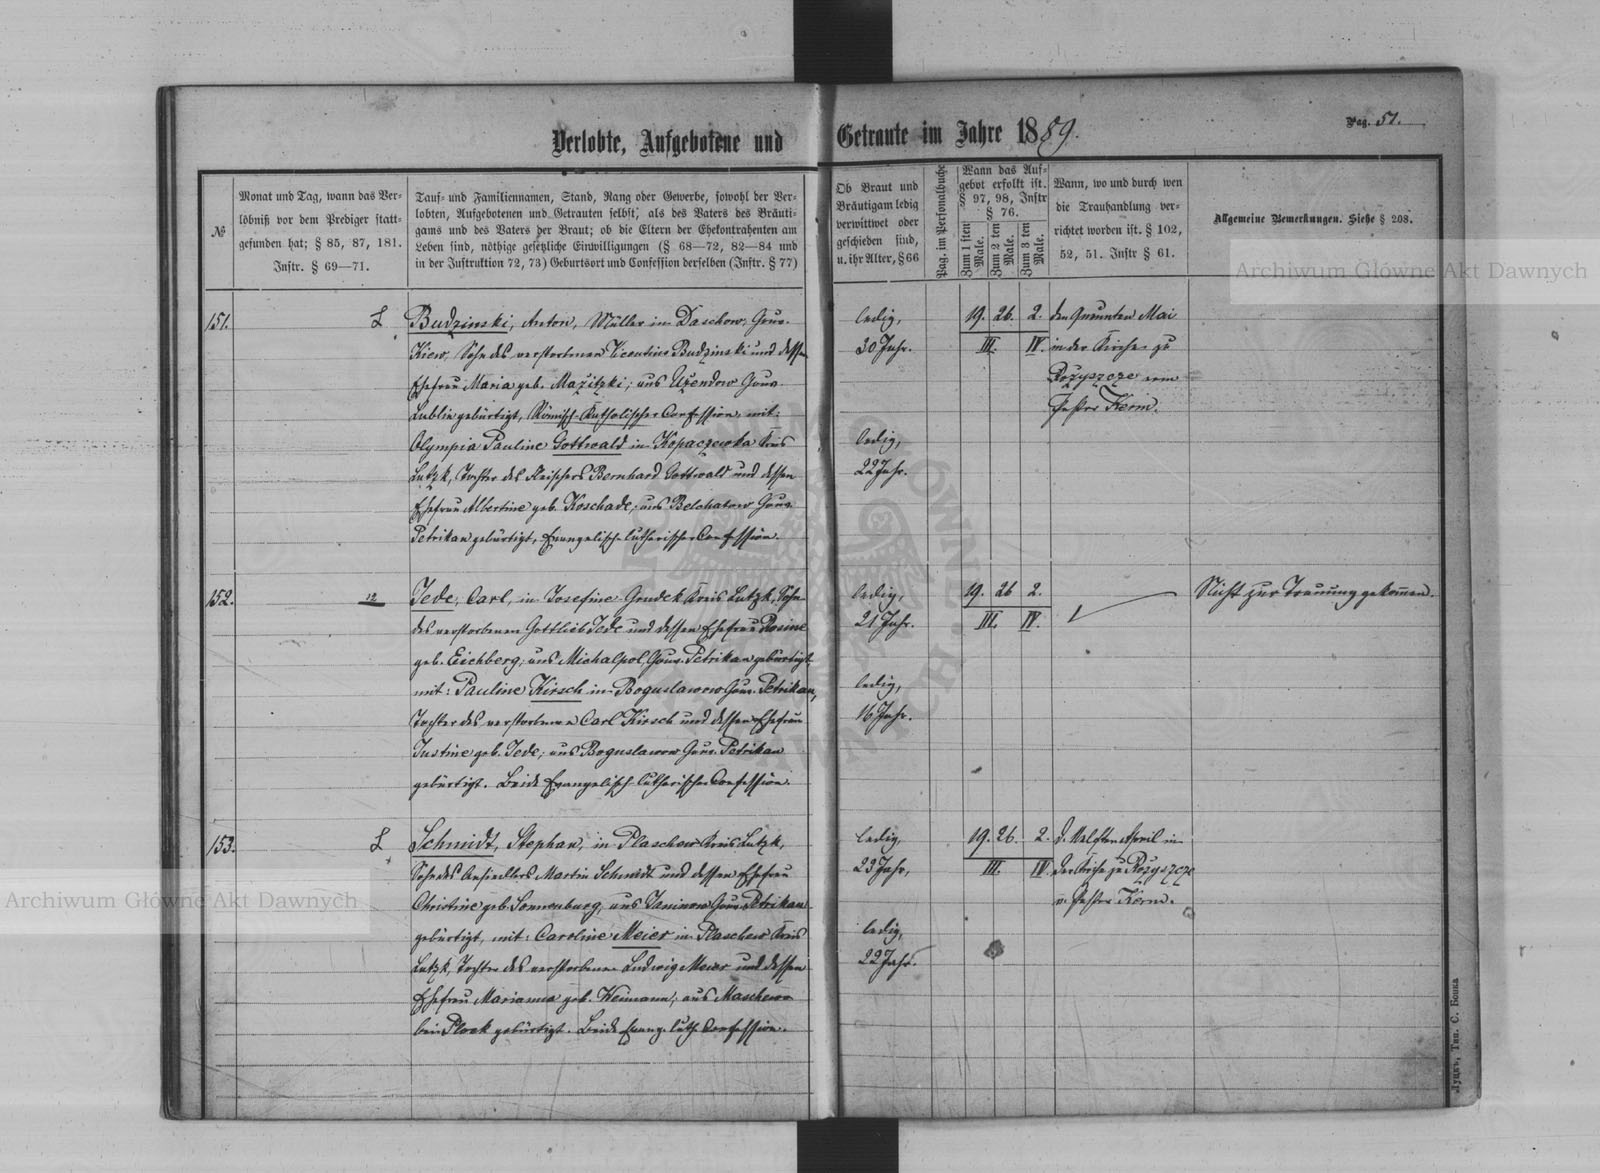 Verlobte, Aufgebotene und Getraute im Jahre 1889.
Pag. 51.
№
Monat und Tag, wann das Ver-
löbniß vor dem Prediger statt-
gefunden hat; § 85, 87, 181.
Instr. § 69—71.
Tauf- und Familiennamen, Stand, Rang oder Gewerbe, sowohl der Ver-
lobten, Aufgebotenen und Getrauten selbst, als des Vaters des Bräuti-
gams und des Vaters der Braut; ob die Eltern der Ehekontrahenten am
Leben sind, nöthige gesetzliche Einwilligungen (§ 68—72, 82—84 und
in der Instruktion 72, 73) Geburtsort und Confession derselben (Instr. § 77)
Ob Braut und
Bräutigam ledig
verwittwet oder
geschieden sind,
u. ihr Alter, § 66
Pag. im Personalbuche
Wann das Auf-
gebot erfolgt ist.
§ 97, 98, Instr
§ 76.
Zum 1 sten Male.
Zum 2 ten Male.
Zum 3 ten Male.
Wann, wo und durch wen
die Trauhandlung ver-
richtet worden ist. § 102,
52, 51. Instr § 61.
Allgemeine Bemerkungen. Siehe § 208.
151.
L
Budzinski, Anton, Müller in Daschow, Gouv.
Kiew, Sohn des verstorbenen Vicentius Budzinski und dessen
Ehefrau Maria geb. Mazitzki; aus Uzendow Gouv.
Lublin gebürtigt, Römisch-Katholischer Confession, mit:
Olympia Pauline Gottwald in Kopaczewka Kreis
Lutzk, Tochter des Fleischers Bernhard Gottwald und dessen
Ehefrau Albertine geb. Koschade, aus Belchatow Gouv.
Petrikau gebürtigt, Evangelisch-lutherischer Confession.
ledig,
30 Jahr.
ledig,
22 Jahr.
19. 26. 2.
III. IV.
den Mai
in der Kirche zu
Rożyszcze vom
Pastor Kerm.
152.
12
Jede, Carl, in Josefine-Grudek Kreis Lutzk, Sohn
des verstorbenen Gottlieb Jede und dessen Ehefrau Rosine
geb. Eichberg, aus Michalpol, Gouv. Petrikau gebürtigt
mit: Pauline Kirsch in Boguslawow Gouv. Petrikau,
Tochter des verstorbenen Carl Kirsch und dessen Ehefrau
Justine geb. Jede; aus Boguslawow Gouv. Petrikau
gebürtigt. Beide Evangelisch-lutherischer Confession.
ledig,
21 Jahr.
ledig,
16 Jahr.
19. 26 2.
III. IV.
Nicht zur Trauung gekommen.
153.
L
Schmidt, Stephan, in Plaschew Kreis Lutzk,
Sohn des Ansiedlers Martin Schmidt und dessen Ehefrau
Christine geb. Sonnenburg, aus Janinow Gouv. Petrikau
gebürtigt, mit: Caroline Meier in Plaschew Kreis
Lutzk, Tochter des verstorbenen Ludwig Meier und dessen
Ehefrau Marianna geb. Heimann, aus Maschewo
bei Plock gebürtigt. Beide Evang. luth. Confession.
ledig,
23 Jahr,
ledig,
22 Jahr.
19. 26. 2.
III. IV.
d. April in
der Kirche zu Rożyszcze
v. Pastor Kerm.
Луцкъ, Тип. С. Бокка
Archiwum Główne Akt Dawnych
Archiwum Główne Akt Dawnych